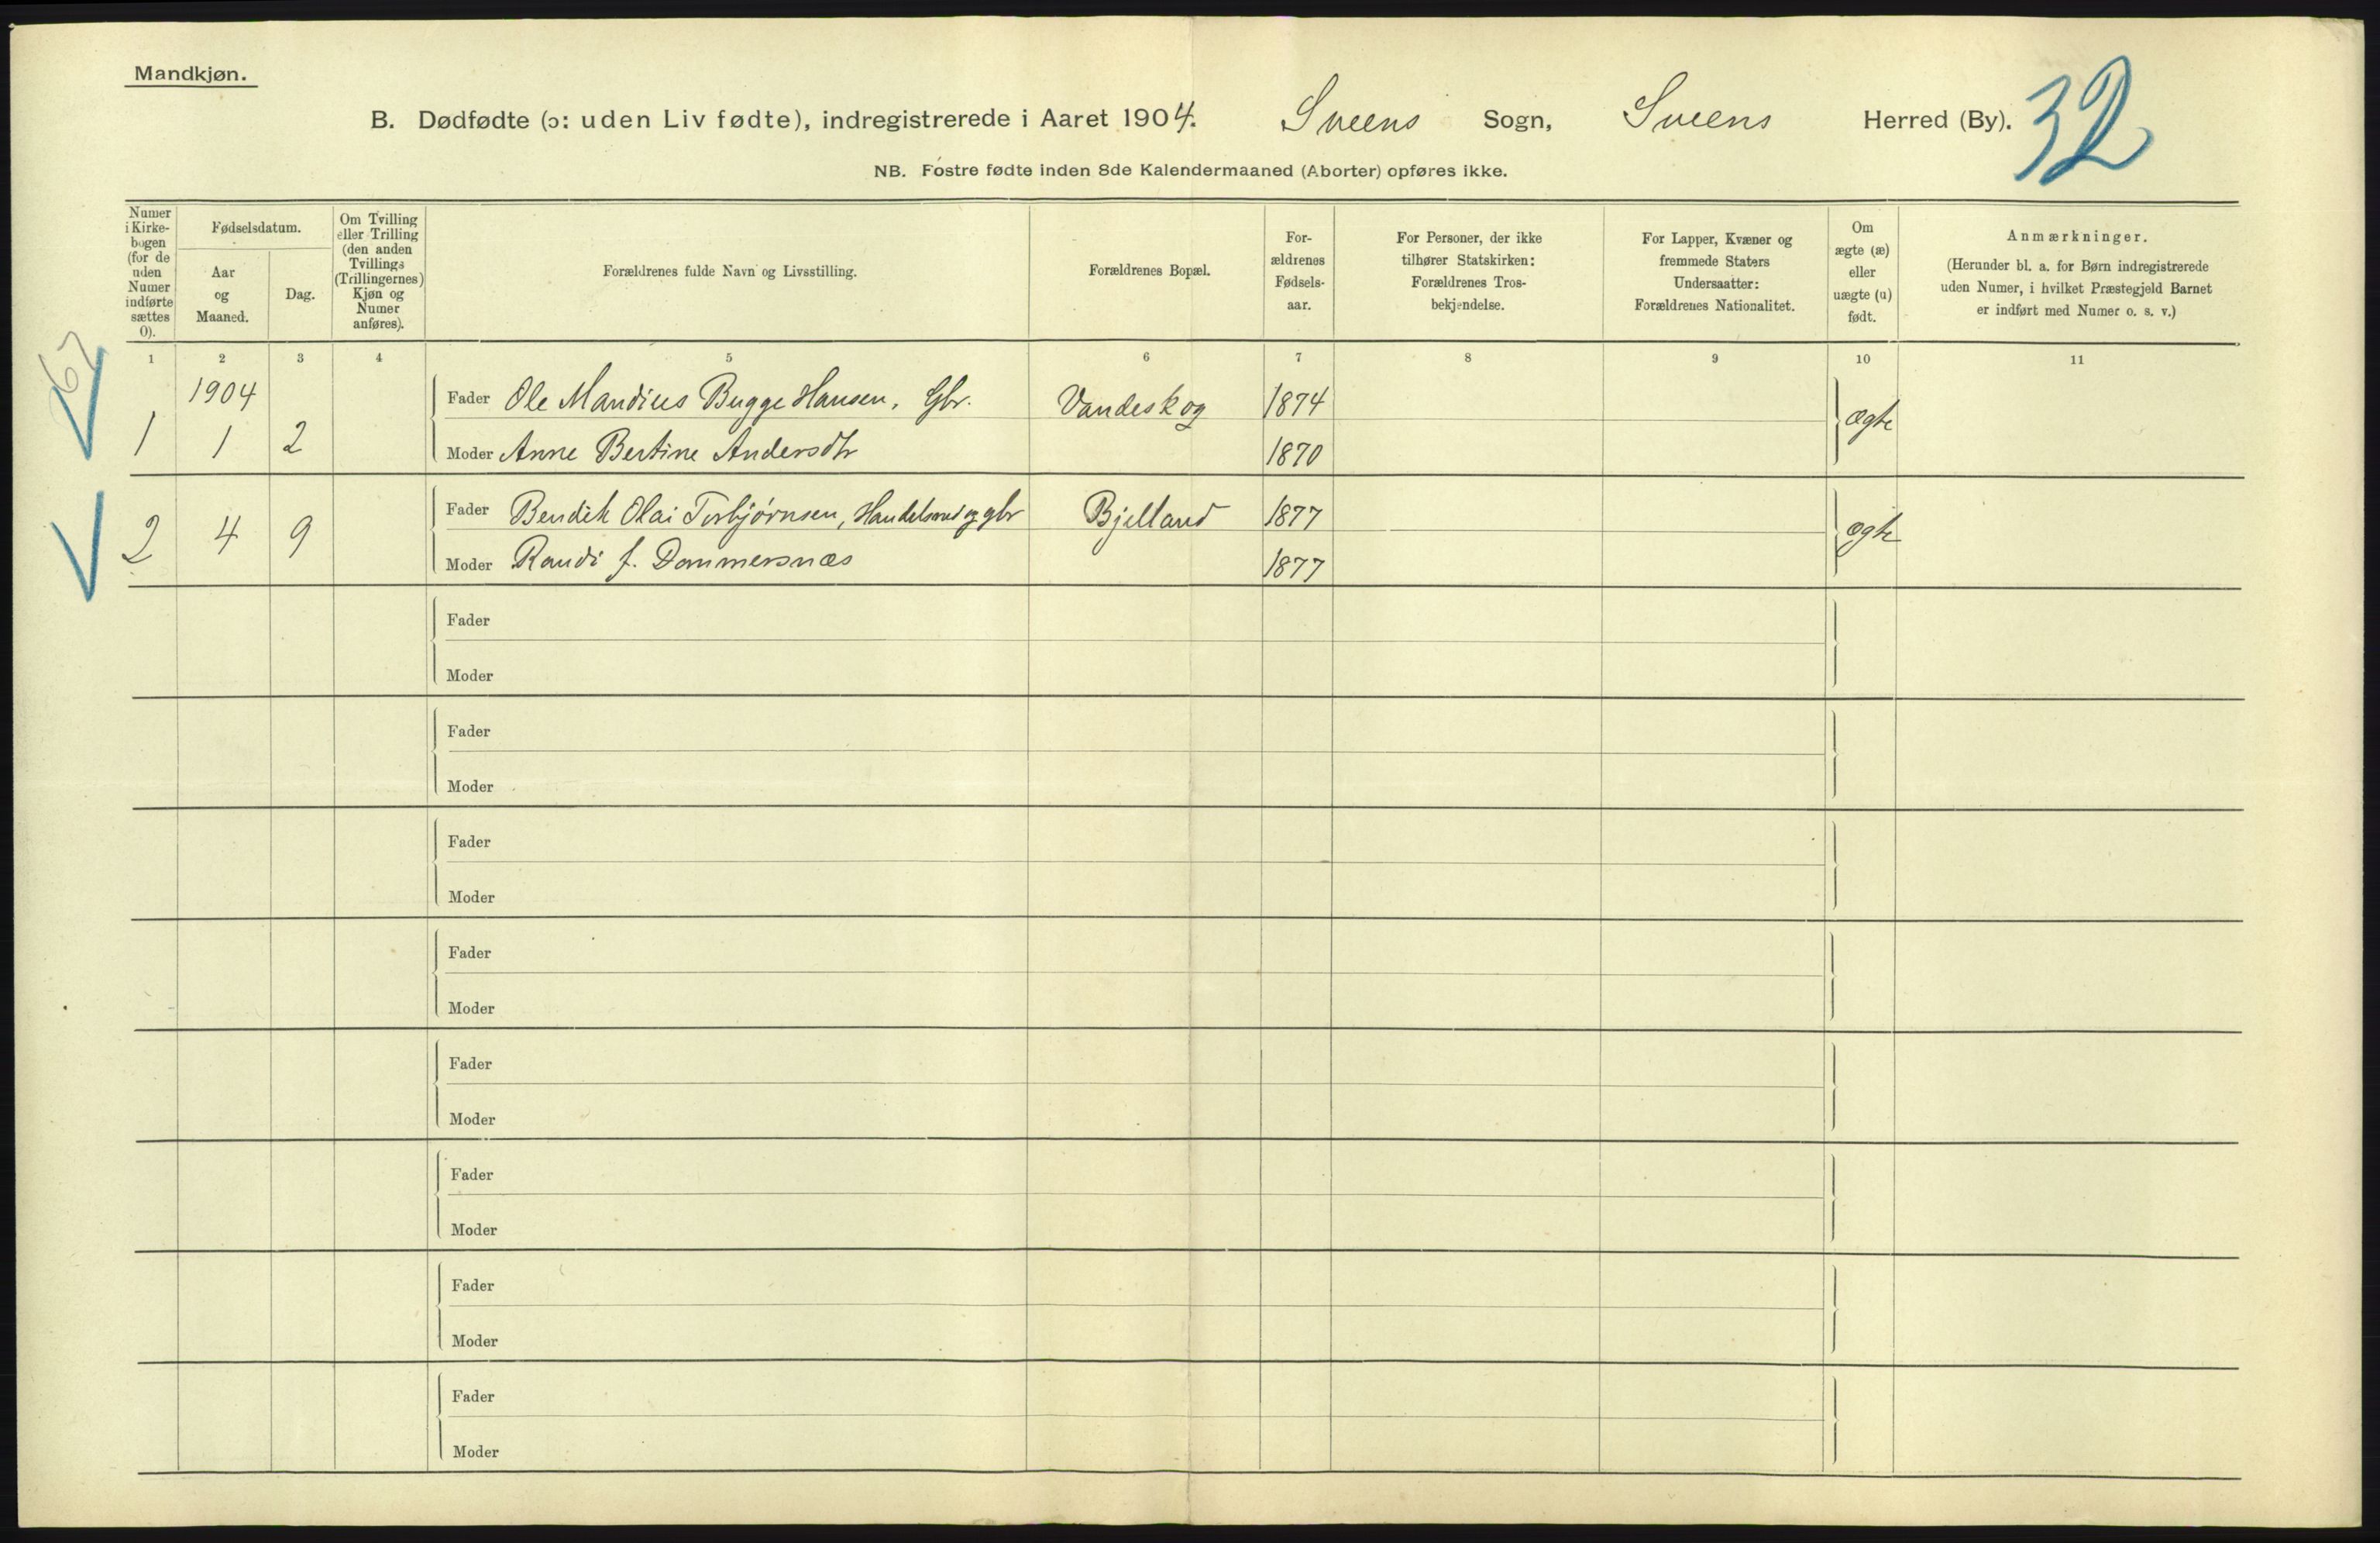 Mandkjøn.
B. Dødfødte (ɔ: uden Liv fødte), indregistrerede i Aaret 1904. Sveens Sogn, Sveens Herred (By). 32
NB. Fostre fødte inden 8de Kalendermaaned (Aborter) opføres ikke.
Numer i Kirkebogen (for de uden Numer indførte sættes 0).
Fødselsdatum.
Aar og Maaned.
Dag.
Om Tvilling eller Trilling (den anden Tvillings (Trillingernes) Kjøn og Numer anføres).
Forældrenes fulde Navn og Livsstilling.
Forældrenes Bopæl.
For-
ældrenes
Fødsels-
aar.
For Personer, der ikke
tilhører Statskirken:
Forældrenes Tros-
bekjendelse.
For Lapper, Kvæner og
fremmede Staters
Undersaatter:
Forældrenes Nationalitet.
Om
ægte (æ)
eller
uægte (u)
født.
Anmærkninger.
(Herunder bl. a. for Børn indregistrerede
uden Numer, i hvilket Præstegjeld Barnet
er indført med Numer o. s. v.)
1 2 3 4 5 6 7 8 9 10 11
67
1904 Fader Ole Mandius Bugge Hansen, Gbr. Vandeskog 1874 ægte
1 1 2 Moder Anne Bertine Andersdtr 1870
Fader Bendik Olai Torbjørnsen, Handelsmd og gbr Bjelland 1877 ægte
2 4 9 Moder Randi f. Dommersnæs 1877
Fader
Moder
Fader
Moder
Fader
Moder
Fader
Moder
Fader
Moder
Fader
Moder
Fader
Moder
Fader
Moder